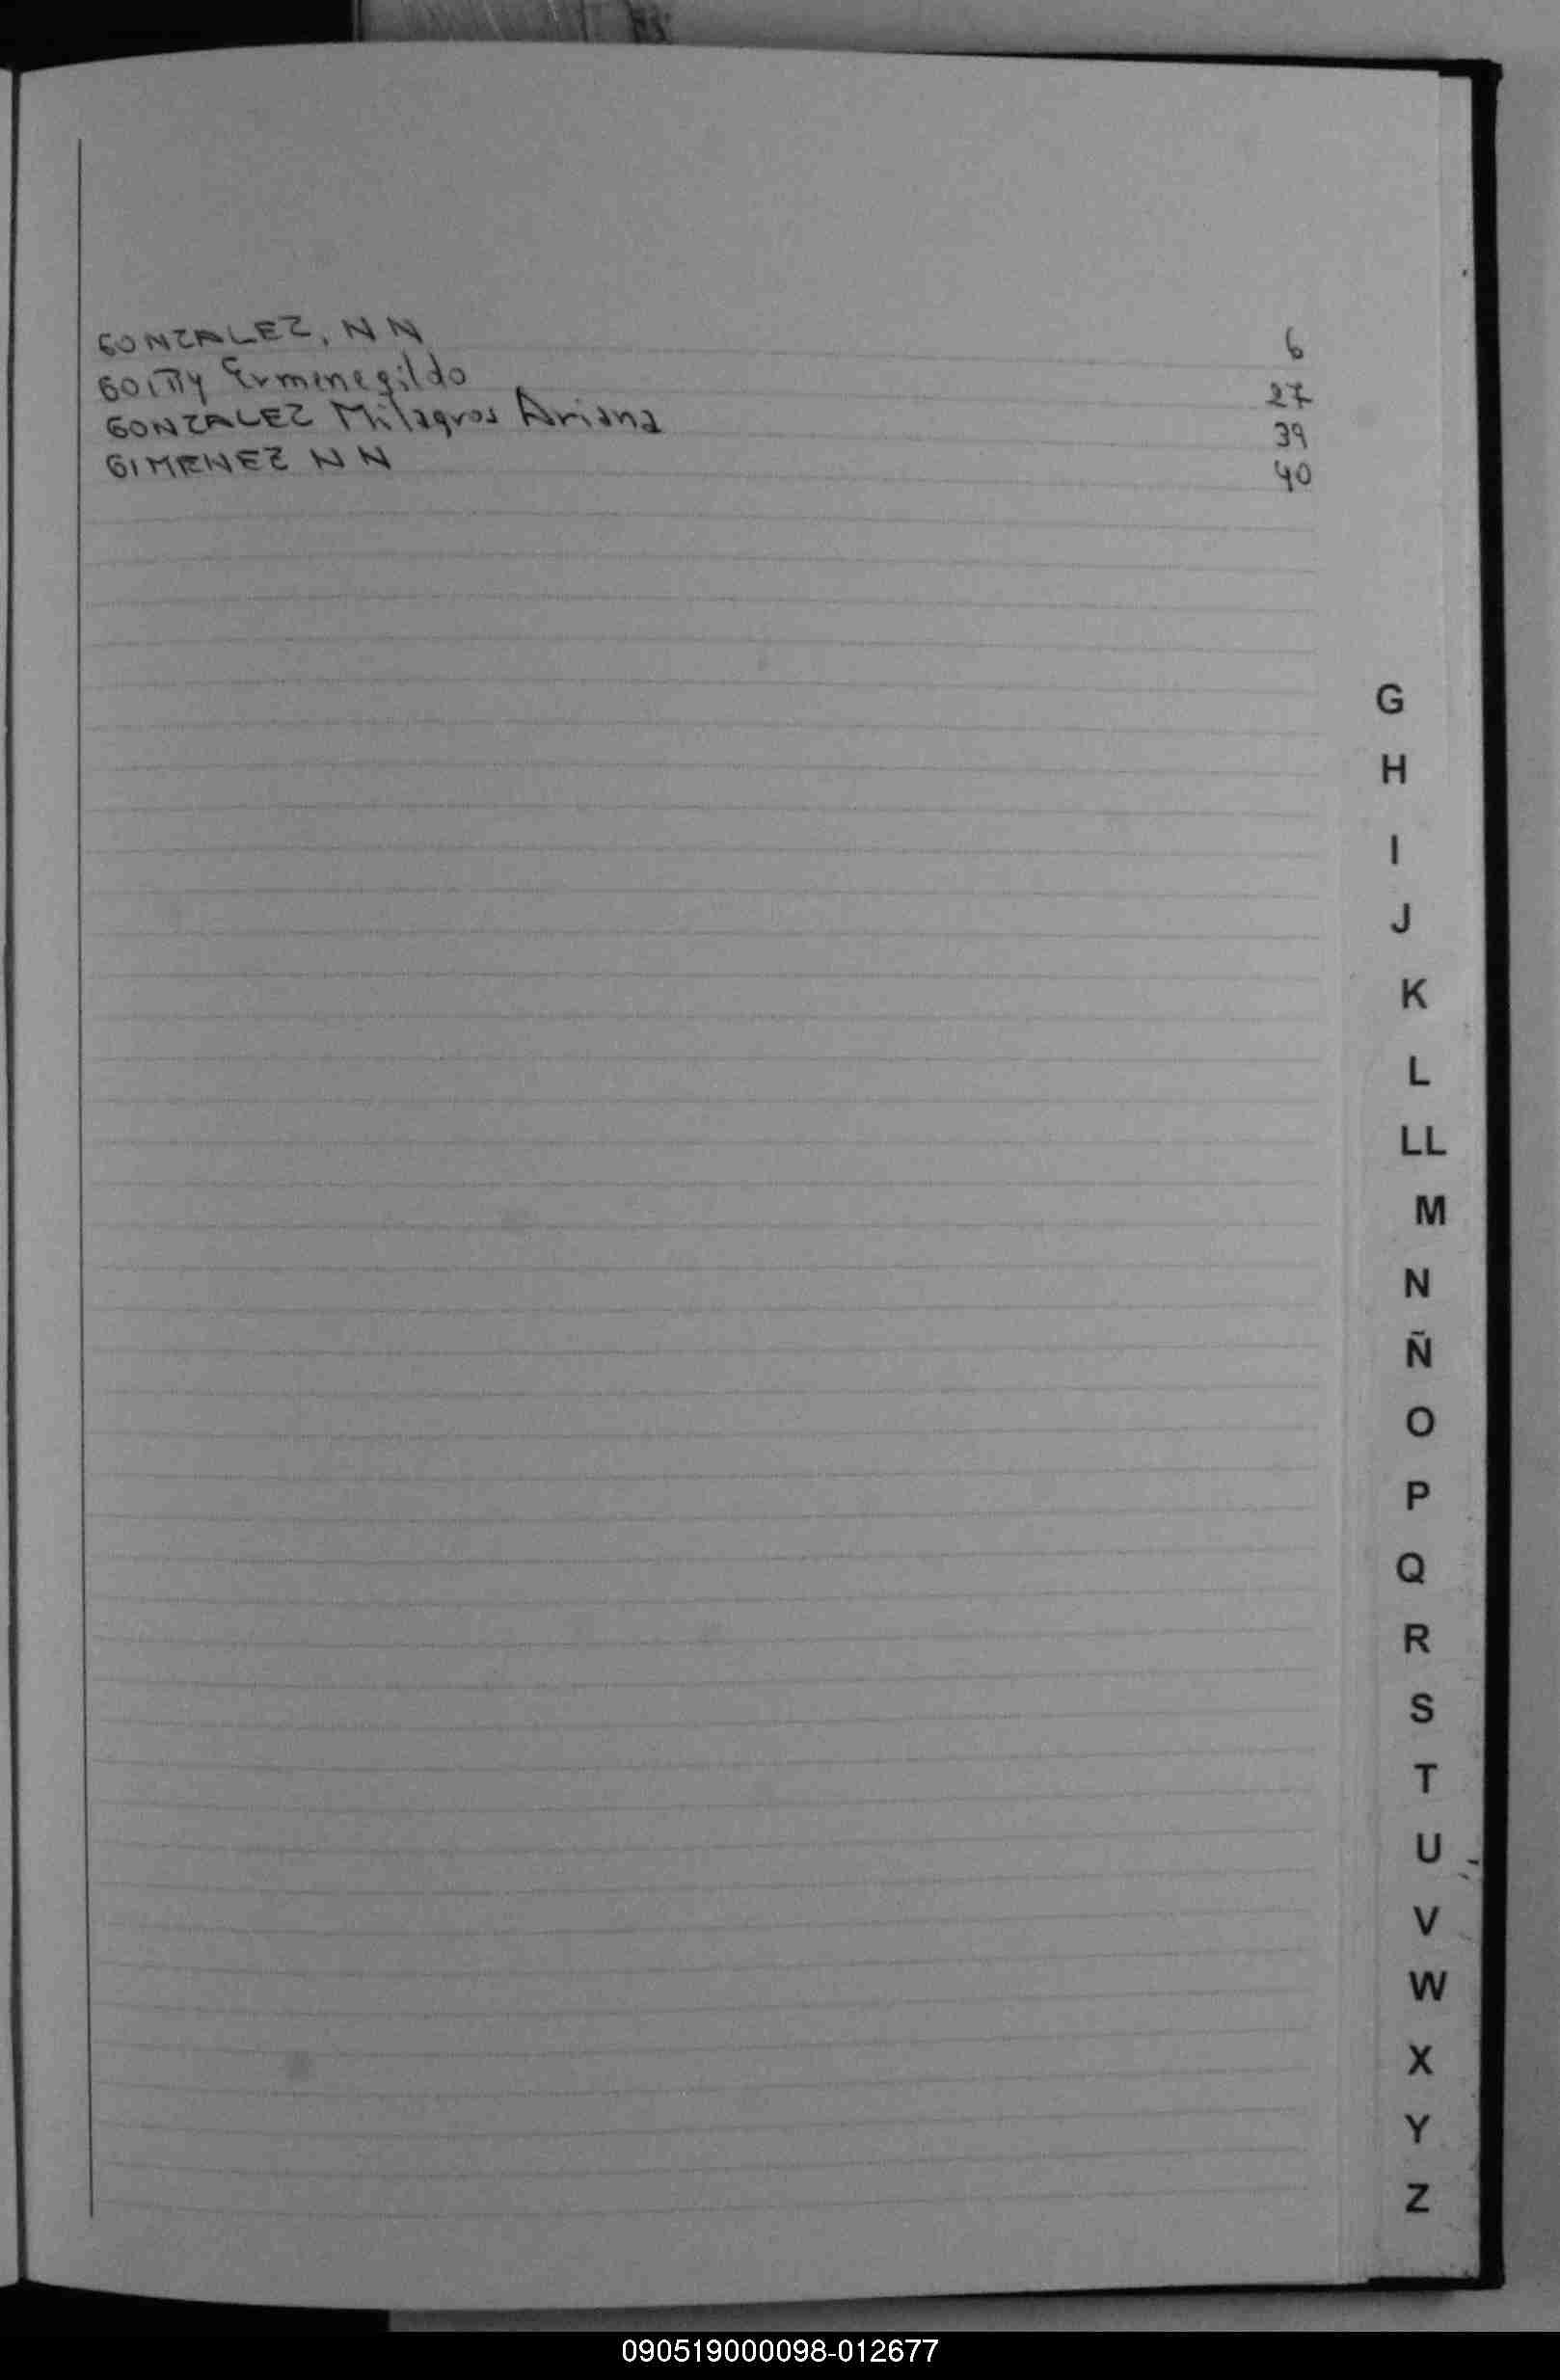 GONZALEZ, N N 6
GOITIY Ermenegildo 27
GONZALEZ Milagros Ariana 39
GIMENEZ N N 40
G
H
I
J
K
L
LL
M
N
Ñ
O
P
Q
R
S
T
U
V
W
X
Y
Z
090519000098-012677